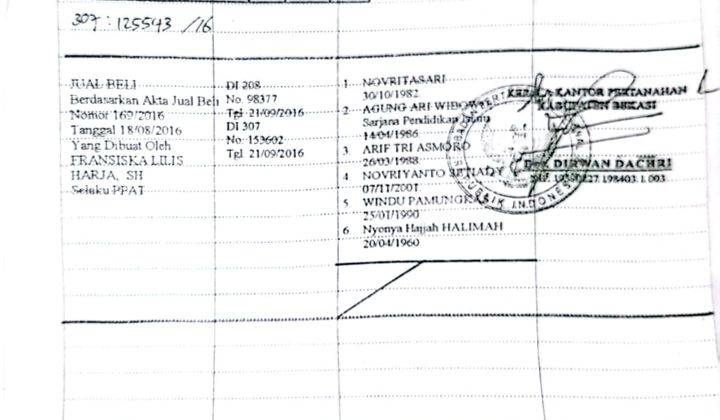 307 : 125543 /16
JUAL BELI
Berdasarkan Akta Jual Beli
Nomor 169/2016
Tanggal 18/08/2016
Yang Dibuat Oleh
FRANSISKA LILIS
HARJA, SH
Selaku PPAT
DI 208
No. 98377
Tgl 21/09/2016
DI 307
No. 153602
Tgl. 21/09/2016
1 NOVRITASARI
30/10/1982
2 AGUNG ARI WIBOWO
Sarjana Pendidikan
14/04/1986
3 ARIF TRI ASMORO
26/03/1988
4 NOVRIYANTO SETIADY
07/11/2001
5 WINDU PAMUNGKAS
25/01/1990
6 Nyonya Hajjah HALIMAH
20/04/1960
KEPALA KANTOR PERTANAHAN
KABUPATEN BEKASI
DIRWAN DACHRI
198403.1.003
REPUBLIK INDONESIA